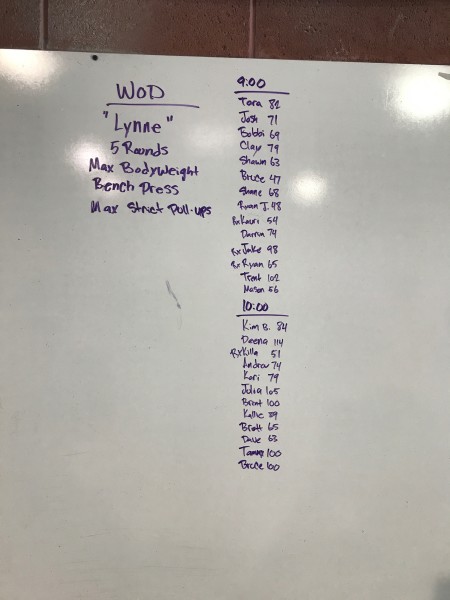 WOD
"Lynne"
5 Rounds
Max Bodyweight
Bench Press
Max Strict Pull-ups
9:00
Tara 82
Josh 71
Bobbi 69
Clay 79
Shawn 63
Bruce 47
Shane 68
Ryan J. 48
Rx Kauri 54
Darrin 74
Rx Jake 98
Rx Ryan 65
Trent 102
Mason 56
10:00
Kim B. 84
Deena 114
Rx Killa 51
Andrew 74
Kari 79
Julia 105
Brent 100
Kallie 39
Brett 65
Dave 63
Tammy 100
Bruce 100